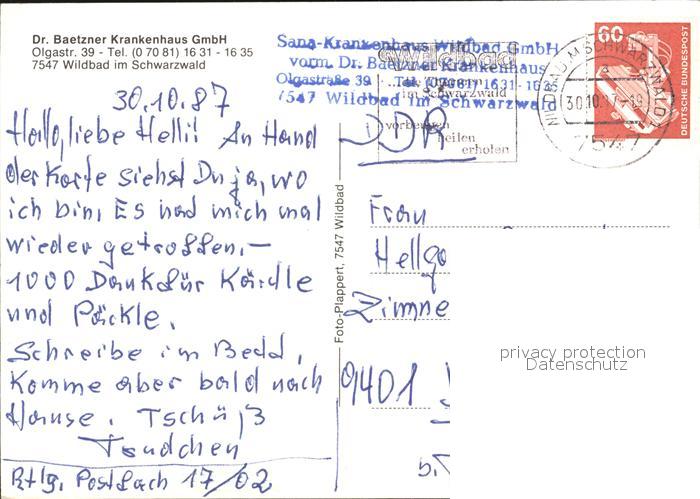 Dr. Baetzner Krankenhaus GmbH
Olgastr. 39 - Tel. (0 70 81) 16 31 - 16 35
7547 Wildbad im Schwarzwald
Sana-Krankenhaus Wildbad GmbH
vorm. Dr. Baetzner Krankenhaus
Olgastraße 39 Tel. 07081/1631-1635
7547 Wildbad im Schwarzwald
Wildbad
im Schwarzwald
vorbeugen
heilen
erholen
WILDBAD IM SCHWARZWALD
30.10.87-19
7547
60
DEUTSCHE BUNDESPOST
30.10.87
Hallo, liebe Helli! An Hand
der Karte siehst Du ja, wo
ich bin, Es had mich mal
wieder getroffen.–
1000 Dank für Kärdle
und Päckle.
Schreibe im Bedd,
Komme aber bald nach
Hause. Tschüß
Traudchen
Rtlg. Postfach 17/02
Foto-Plappert, 7547 Wildbad
DDR
Frau
Hellga
Zimme
9401
privacy protection
Datenschutz